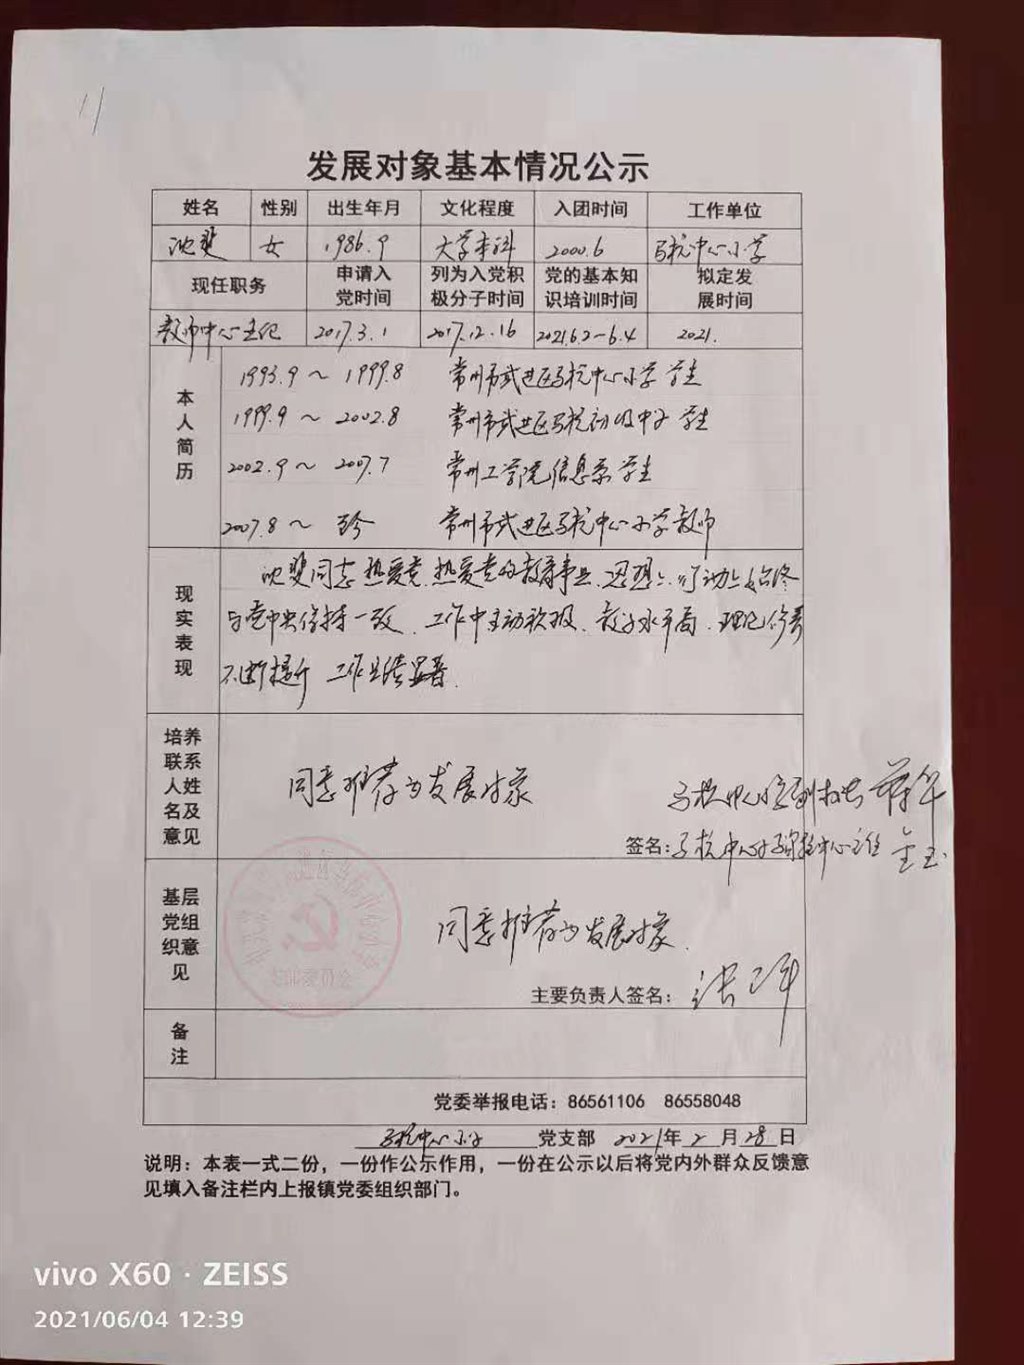 11
发展对象基本情况公示
姓名 性别 出生年月 文化程度 入团时间 工作单位
沈斐 女 1986.9 大学本科 2000.6 马杭中心小学
现任职务 申请入党时间 列为入党积极分子时间 党的基本知识培训时间 拟定发展时间
教师中心书记 2017.3.1 2017.12.16 2021.6.2-6.4 2021.
本人简历
1993.9～1999.8 常州市武进区马杭中心小学 学生
1999.9～2002.8 常州市武进区马杭初级中学 学生
2002.9～2007.7 常州工学院信息系 学生
2007.8～至今 常州市武进区马杭中心小学教师
现实表现
沈斐同志热爱党、热爱党的教育事业、思想上、行动上始终
与党中央保持一致、工作中主动积极、教学水平高、理论修养
不断提升 工作业绩显著.
培养联系人姓名及意见
同意推荐为发展对象
马杭中心小学副校长
签名:马杭中心小学 中心主任
基层党组织意见
同意推荐为发展对象.
主要负责人签名:
备注
党委举报电话: 86561106 86558048
马杭中心小学 党支部 2021年2月28日
说明:本表一式二份,一份作公示作用,一份在公示以后将党内外群众反馈意
见填入备注栏内上报镇党委组织部门。
vivo X60 · ZEISS
2021/06/04 12:39